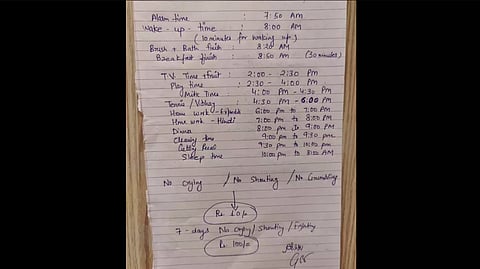 Alarm time : 7:50 Am
Wake-up-time : 8:00 AM
(10 minutes for waking up)
Brush + Bath finish : 8:20 AM
Breakfast finish : 8:50 AM (30 minutes)
T.V. Time + fruit : 2:00 - 2:30 Pm
Play time : 2:30 - 4:00 Pm
Milk Time : 4:00 PM - 4:30 PM
Tennis / : 4:30 PM - 6:00 PM
Home work - : 6:00 Pm to 7:00 Pm
Home work - Hindi : 7:00 pm to 8:00 PM
Dinner : 8:00 pm to 9:00 PM
Cleaning time : 9:00 PM to 9:30 pm
9:30 pm to 10:00 pm
Sleep time : 10:00 pm to 8:00 AM
No crying / No Shouting / No Grumbling
Rs. 10/-
7-days No Crying / Shouting / Fighting
Rs. 100/-